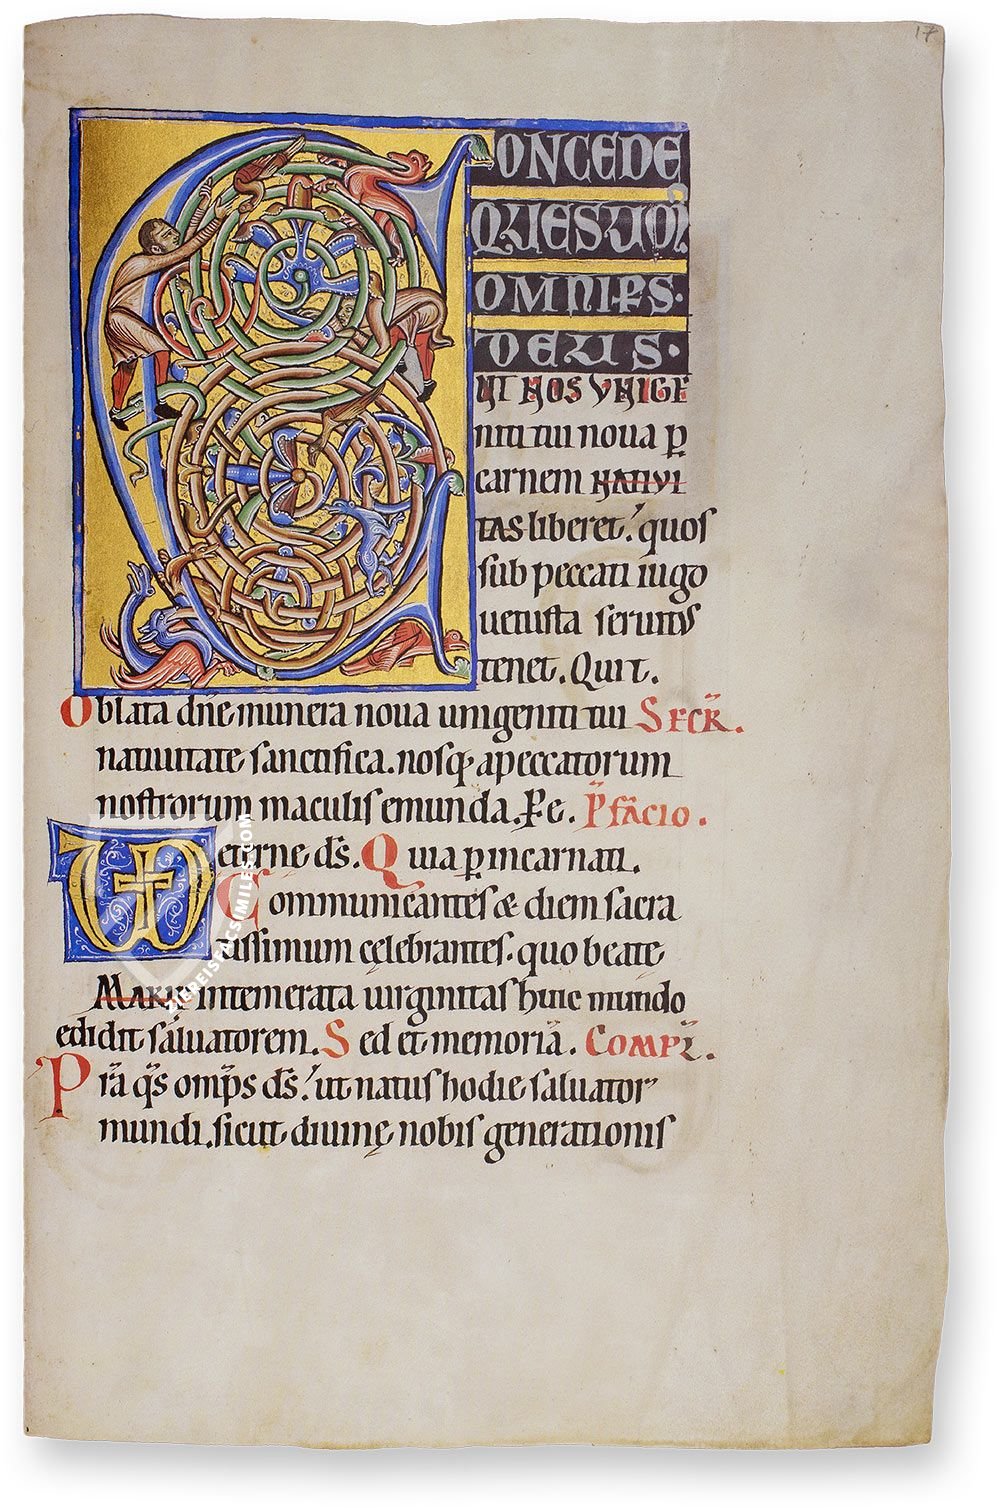 17
CONCEDE
QUESUM̄
OMNIP̄S.
DEUS.
UT NOS VNIGE
niti tui noua ꝑ
carnem NATIVI
TAS liberet. quos
sub peccati iugo
uetusta seruitus
tenet. Quit.
Oblata dn̄e munera noua unigeniti tui SECR̄.
natiuitate sanctifica. nosq; a peccatorum
nostrorum maculis emunda. Pe. P̄facio.
eterne ds̄. Quia ꝑ incarnati.
Communicantes & diem sacra
tissimum cęlebrantes. quo beate
MARIE intemerata uirginitas huic mundo
edidit saluatorem. Sed et memoriā. COMPL̄.
Pr̄a q̄s omp̄s ds̄. ut natus hodie saluator
mundi. sicut diuinę nobis generationis
ZIEREISFACSIMILES.COM